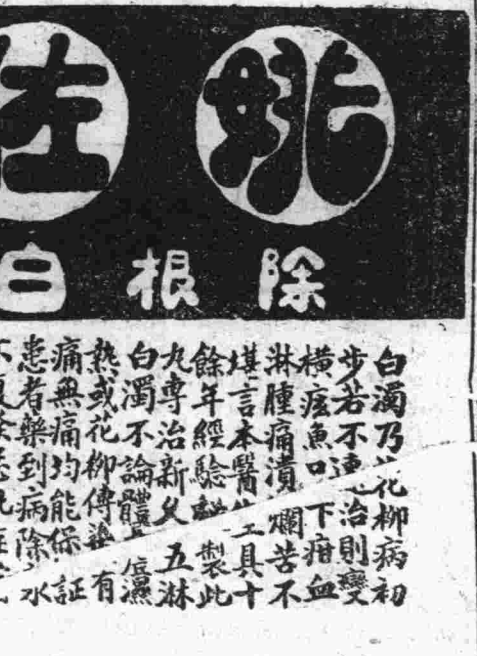 姚佐
除根白
白濁乃花柳病初
步若不速治則變
橫痃魚口下疳血
淋腫痛潰爛苦不
堪言本醫生具十
餘年經驗製此
丸專治新久五淋
白濁不論體濕
熱或花柳傳染有
痛無痛均能保証
患者藥到病除永